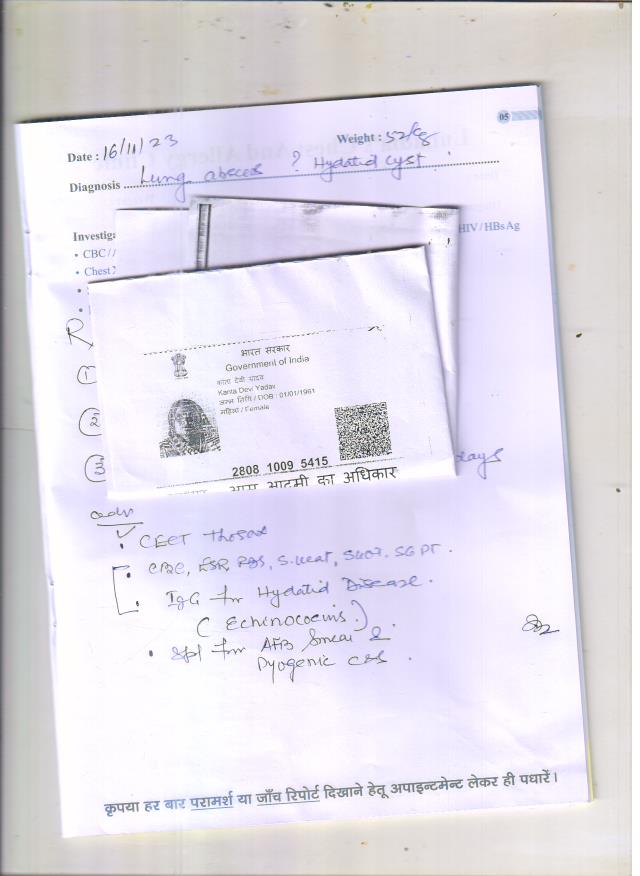 05
Date : 16/11/23
Weight : 52kg
Diagnosis Lung abscess ? Hydatid cyst
Investig
HIV / HBs Ag
• CBC /
• Chest
R
1
भारत सरकार
Government of India
Kanta Devi Yadav
जन्म तिथि / DOB : 01/01/1961
महिला / Female
2
2808 1009 5415
आम आदमी का अधिकार
3
days
adv
CECT Thorax
CBC, ESR, RBS, S. Creat, SGOT, SGPT.
IgG for Hydatid Disease.
( Echinococcus.)
• Spt for AFB Smear &
Pyogenic C&S.
कृपया हर बार परामर्श या जाँच रिपोर्ट दिखाने हेतू अपाइन्टमेन्ट लेकर ही पधारें।